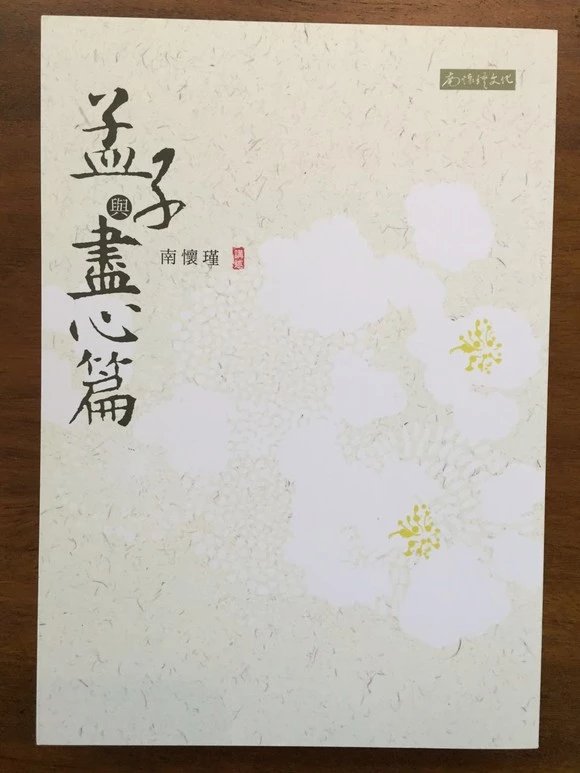 南懷瑾文化
孟子
與
盡心篇
南懷瑾
講述